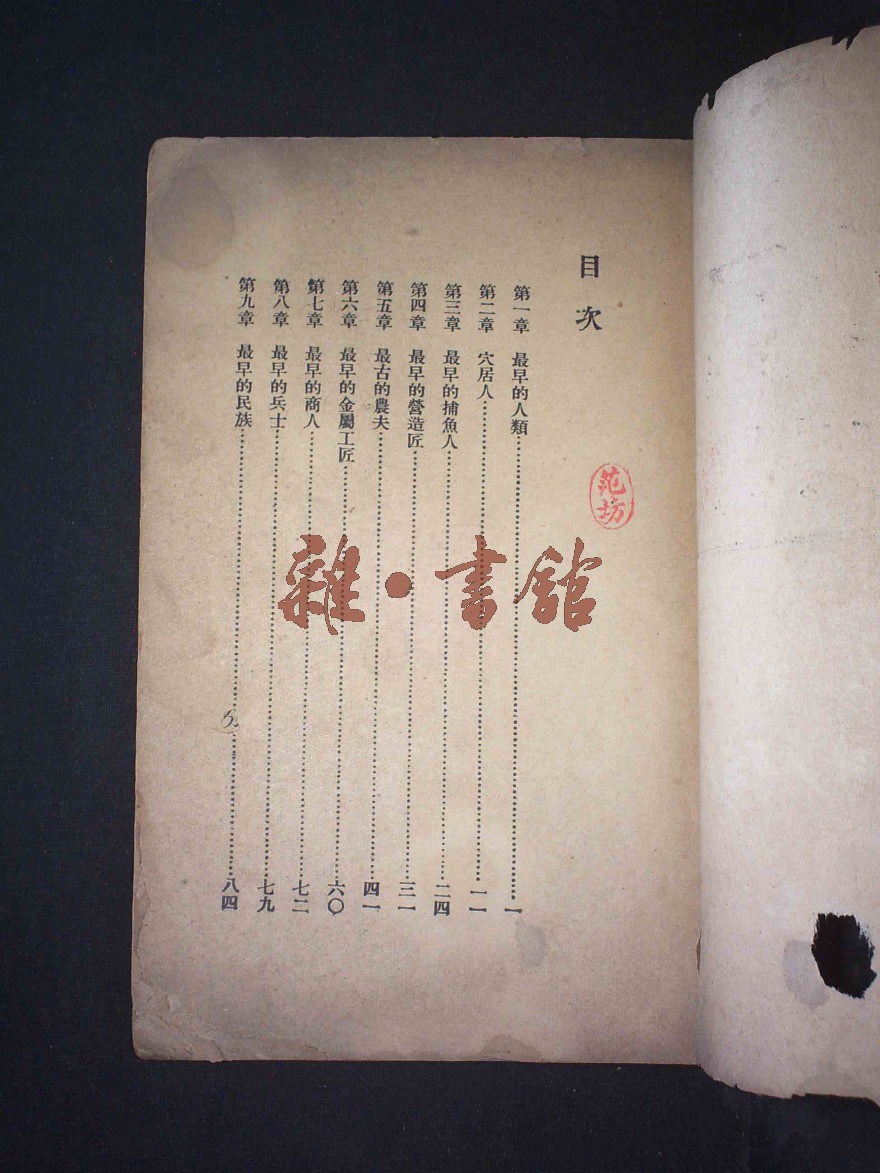 目次
第一章 最早的人類……一
第二章 穴居人……一一
第三章 最早的捕魚人……二四
第四章 最早的營造匠……三一
第五章 最古的農夫……四一
第六章 最早的金屬工匠……六〇
第七章 最早的商人……七二
第八章 最早的兵士……七九
第九章 最早的民族……八四
范坊
雜·書館